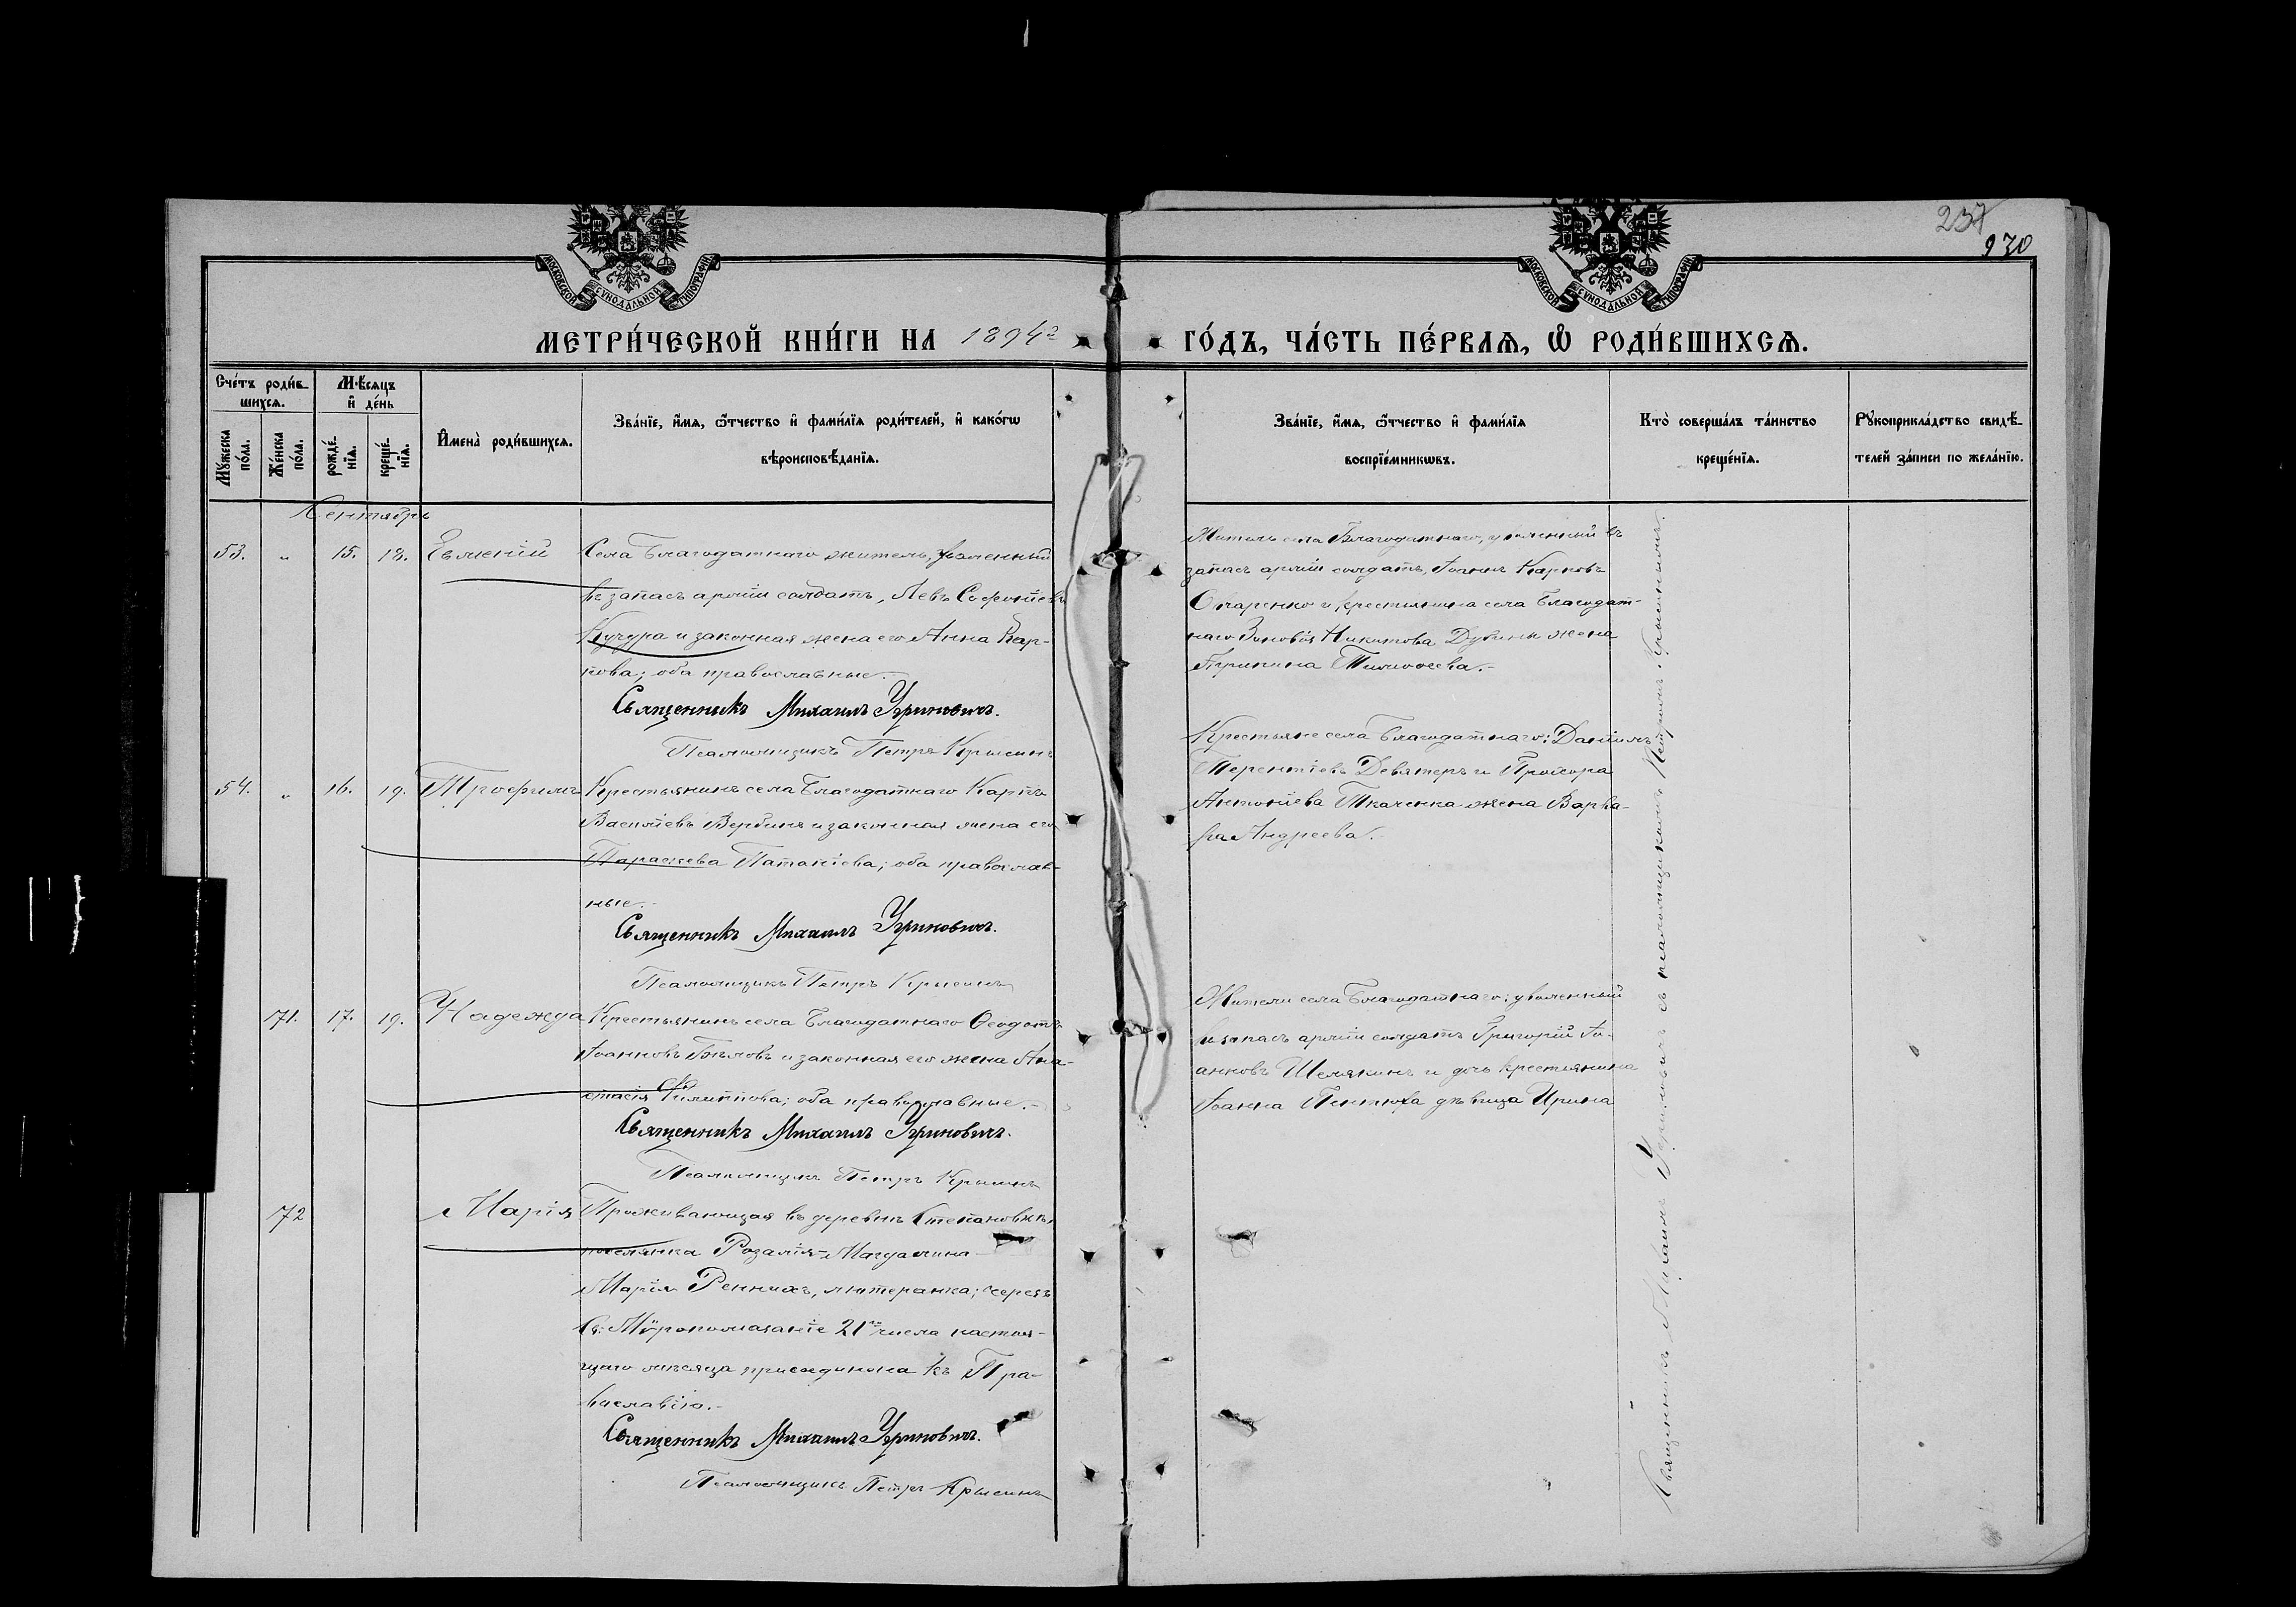 237
930
МОСКОВСКОЙ СѴНОДАЛЬНОЙ ТИПОГРАФІИ
МОСКОВСКОЙ СѴНОДАЛЬНОЙ ТИПОГРАФІИ
МЕТРИ́ЧЕСКОЙ КНИ́ГИ НА 1894 г
ГО́ДЪ, ЧА́СТЬ ПЕ́РВАѦ, Ѡ РОДИ́ВШИХСѦ.
Сче́тъ роди́в-
шихсѧ.
Мꙋжеска по́ла.
Же́нска по́ла.
Мѣ́сѧцъ
и҆ де́нь
рожде́-
нїѧ.
креще́-
нїѧ.
И҆мена̀ роди́вшихсѧ.
Зва́нїе, и҆́мѧ, ѻ҆́тчество и҆ фами́лїѧ роди́телей, и҆ како́гѡ
вѣроисповѣ́данїѧ.
Зва́нїе, и҆́мѧ, ѻ҆́тчество и҆ фами́лїѧ
воспрїе́мникѡвъ.
Кто̀ соверша́лъ та́инство
креще́нїѧ.
Рꙋкоприкла́дство свидѣ́-
телей за́писи по жела́нїю.
Сентябрь
53. " 15. 18. Евменій
Села Благодатнаго житель, уволенный
въ запасъ арміи солдатъ, Левъ Софоніевъ
Кучура и законная жена его Анна Кар-
пова; оба православные.-
Священникъ Михаилъ Угриновичъ.
Псаломщикъ Петръ Крысинъ
Житель села Благодатнаго, уволенный въ
запасъ арміи солдатъ, Іоаннъ Карповъ
Овчаренко и крестьянина села Благодат-
наго Зиновія Никитова Дубины жена
Тимофеева.-
54. " 16. 19. Трофимъ
Крестьянинъ села Благодатнаго Карпъ
Вербинъ и законная жена его
оба православ-
ные.-
Священникъ Михаилъ Угриновичъ.
Псаломщикъ Петръ Крысинъ
Крестьяне села Благодатнаго: Даніилъ
Терентіевъ Девятеръ и
Антоніева Ткаченка жена Варва-
ра Андреева.-
71. 17. 19. Надежда
Крестьянинъ села Благодатнаго Ѳеодотъ
Іоанновъ Бѣловъ и законная его жена Ана-
стасія Филиппова; оба православные.-
Священникъ Михаилъ Угриновичъ.
Псаломщикъ Петръ Крысинъ
Жители села Благодатнаго: уволенный
въ запасъ арміи солдатъ Григорій Іо-
анновъ Шемякинъ и дочь крестьянина
Іоанна Пентюха дѣвица Ирина
72 Марія
Проживающая въ деревнѣ Степановкѣ,
поселянка Розалія-Магдалина-
Марія Реннихъ, лютеранка; черезъ
Св. Мѵропомазаніе 21го числа настоя-
щаго мѣсяца присоединена къ Пра-
вославію.-
Священникъ Михаилъ Угриновичъ.
Псаломщикъ Петръ Крысинъ
Священникъ Михаилъ Угриновичъ съ псаломщикомъ Петромъ Крысинымъ.